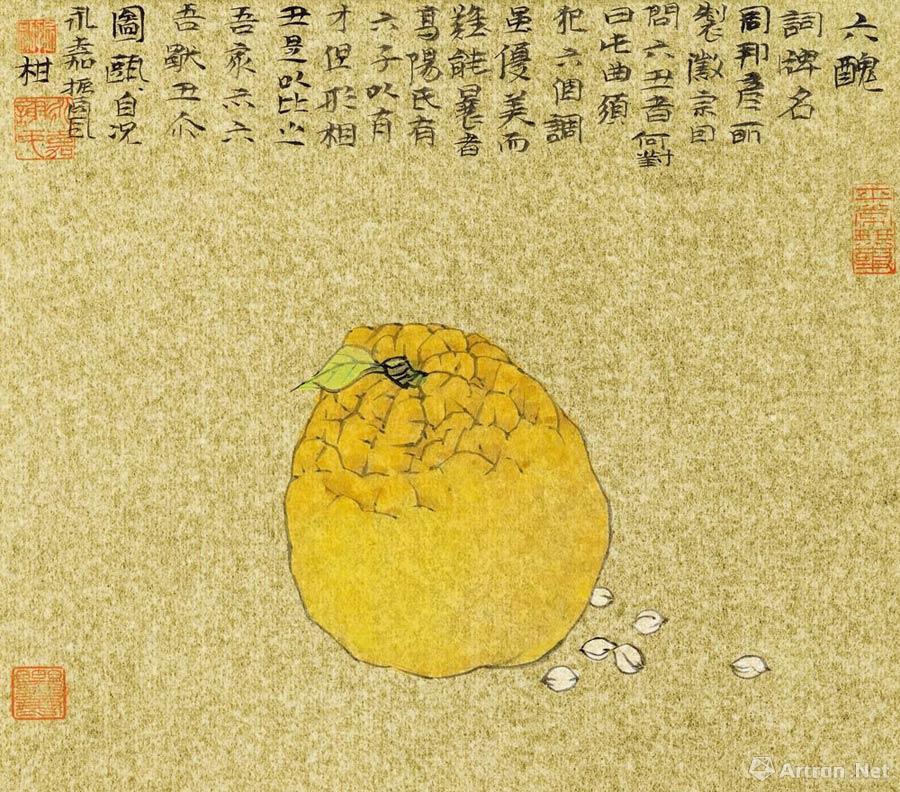 六醜
詞牌名
周邦彥所
製徽宗因
問六丑者何對
曰此曲須
犯六個調
虽優美而
難能
高陽氏有
六子以有
才但形相
丑是以比之
吾家亦六
吾獸丑
圖甌自况
永嘉
柑
Artron.Net